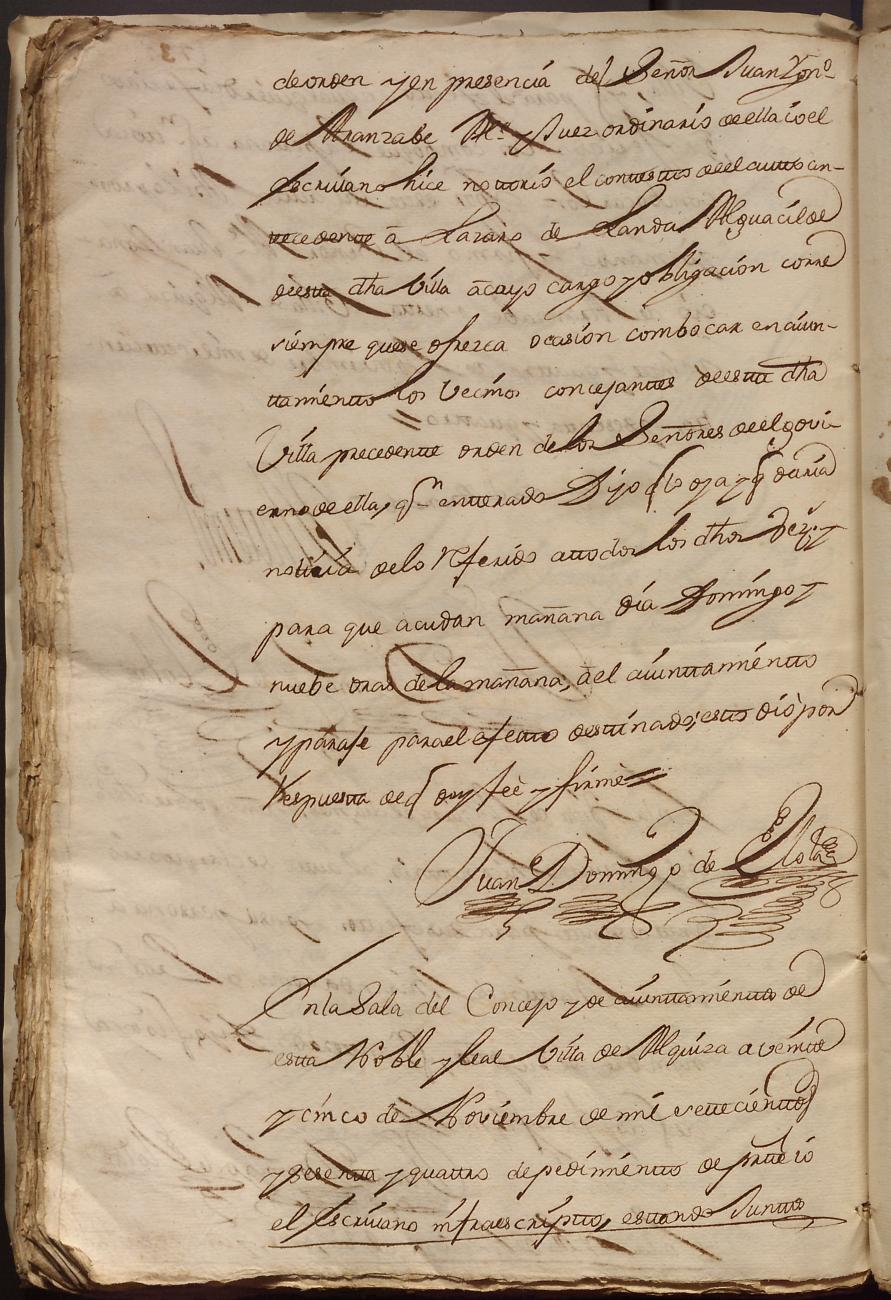 de orden y en presencia del Señor Juan Ygn.º
de Aranzabe Al.e y Juez ordinario de ella io el
escrivano hice notorio el contesto de el autto an-
tecedente â Lazaro de Landa Alguacil de
de esta dha Villa â cuyo cargo y obligacion corre
siempre que se ofrezca ocasion combocar en aiun-
tamientto los Vecinos concejantes de esta dha
Villa precedente orden de los Señores de el govi-
erno de ella, q.n entterado Dijo q lo oya y q daria
noticia de lo referido a ttodos los dhos Vez.s
para que acudan mañana dia Domingo y
nuebe oras de la mañana, â el aiunttamientto
y paraje para el efectto destinado; esto dió por
Respuesta de q doy feè y firmè =
Juan Domingo de
En la Sala del Concejo y de aiunttamientto de
esta Noble y leal Villa de Alquiza a veintte
y cinco de Noviembre de mil settecienttos
y sesenta y quattro de pedimientto de
el Escrivano infraescriptto, estando Junttos